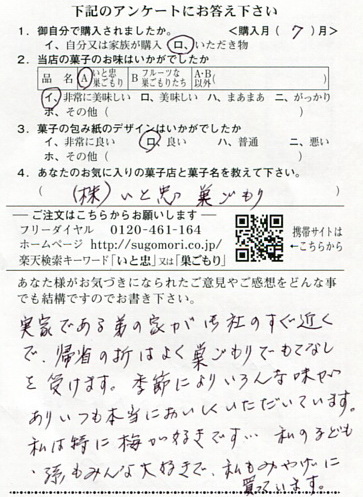 下記のアンケートにお答え下さい
1. 御自分で購入されましたか。 <購入月( 7 )月>
イ、自分又は家族が購入 ロ、いただき物
2. 当店の菓子のお味はいかがでしたか
品 名 A いと忠巣ごもり B フルーツな巣ごもりたち A・B以外( )
イ、非常に美味しい ロ、美味しい ハ、まあまあ ニ、がっかり
ホ、その他( )
3. 菓子の包み紙のデザインはいかがでしたか
イ、非常に良い ロ、良い ハ、普通 ニ、悪い
ホ、その他( )
4. あなたのお気に入りの菓子店と菓子名を教えて下さい。
( (株)いと忠 巣ごもり )
ご注文はこちらからお願いします
フリーダイヤル 0120-461-164
ホームページ http://sugomori.co.jp/
楽天検索キーワード「いと忠」又は「巣ごもり」
携帯サイトは
←こちらから
あなた様がお気づきになられたご意見やご感想をどんな事
でも結構ですのでお書き下さい。
実家である弟の家が御社のすぐ近く
で、帰省の折はよく巣ごもりでもてなし
を受けます。季節によりいろんな味が
ありいつも本当においしくいただいています。
私は特に梅が好きです… 私の子ども
、孫もみんな大好きで、私もみやげに
買っています。